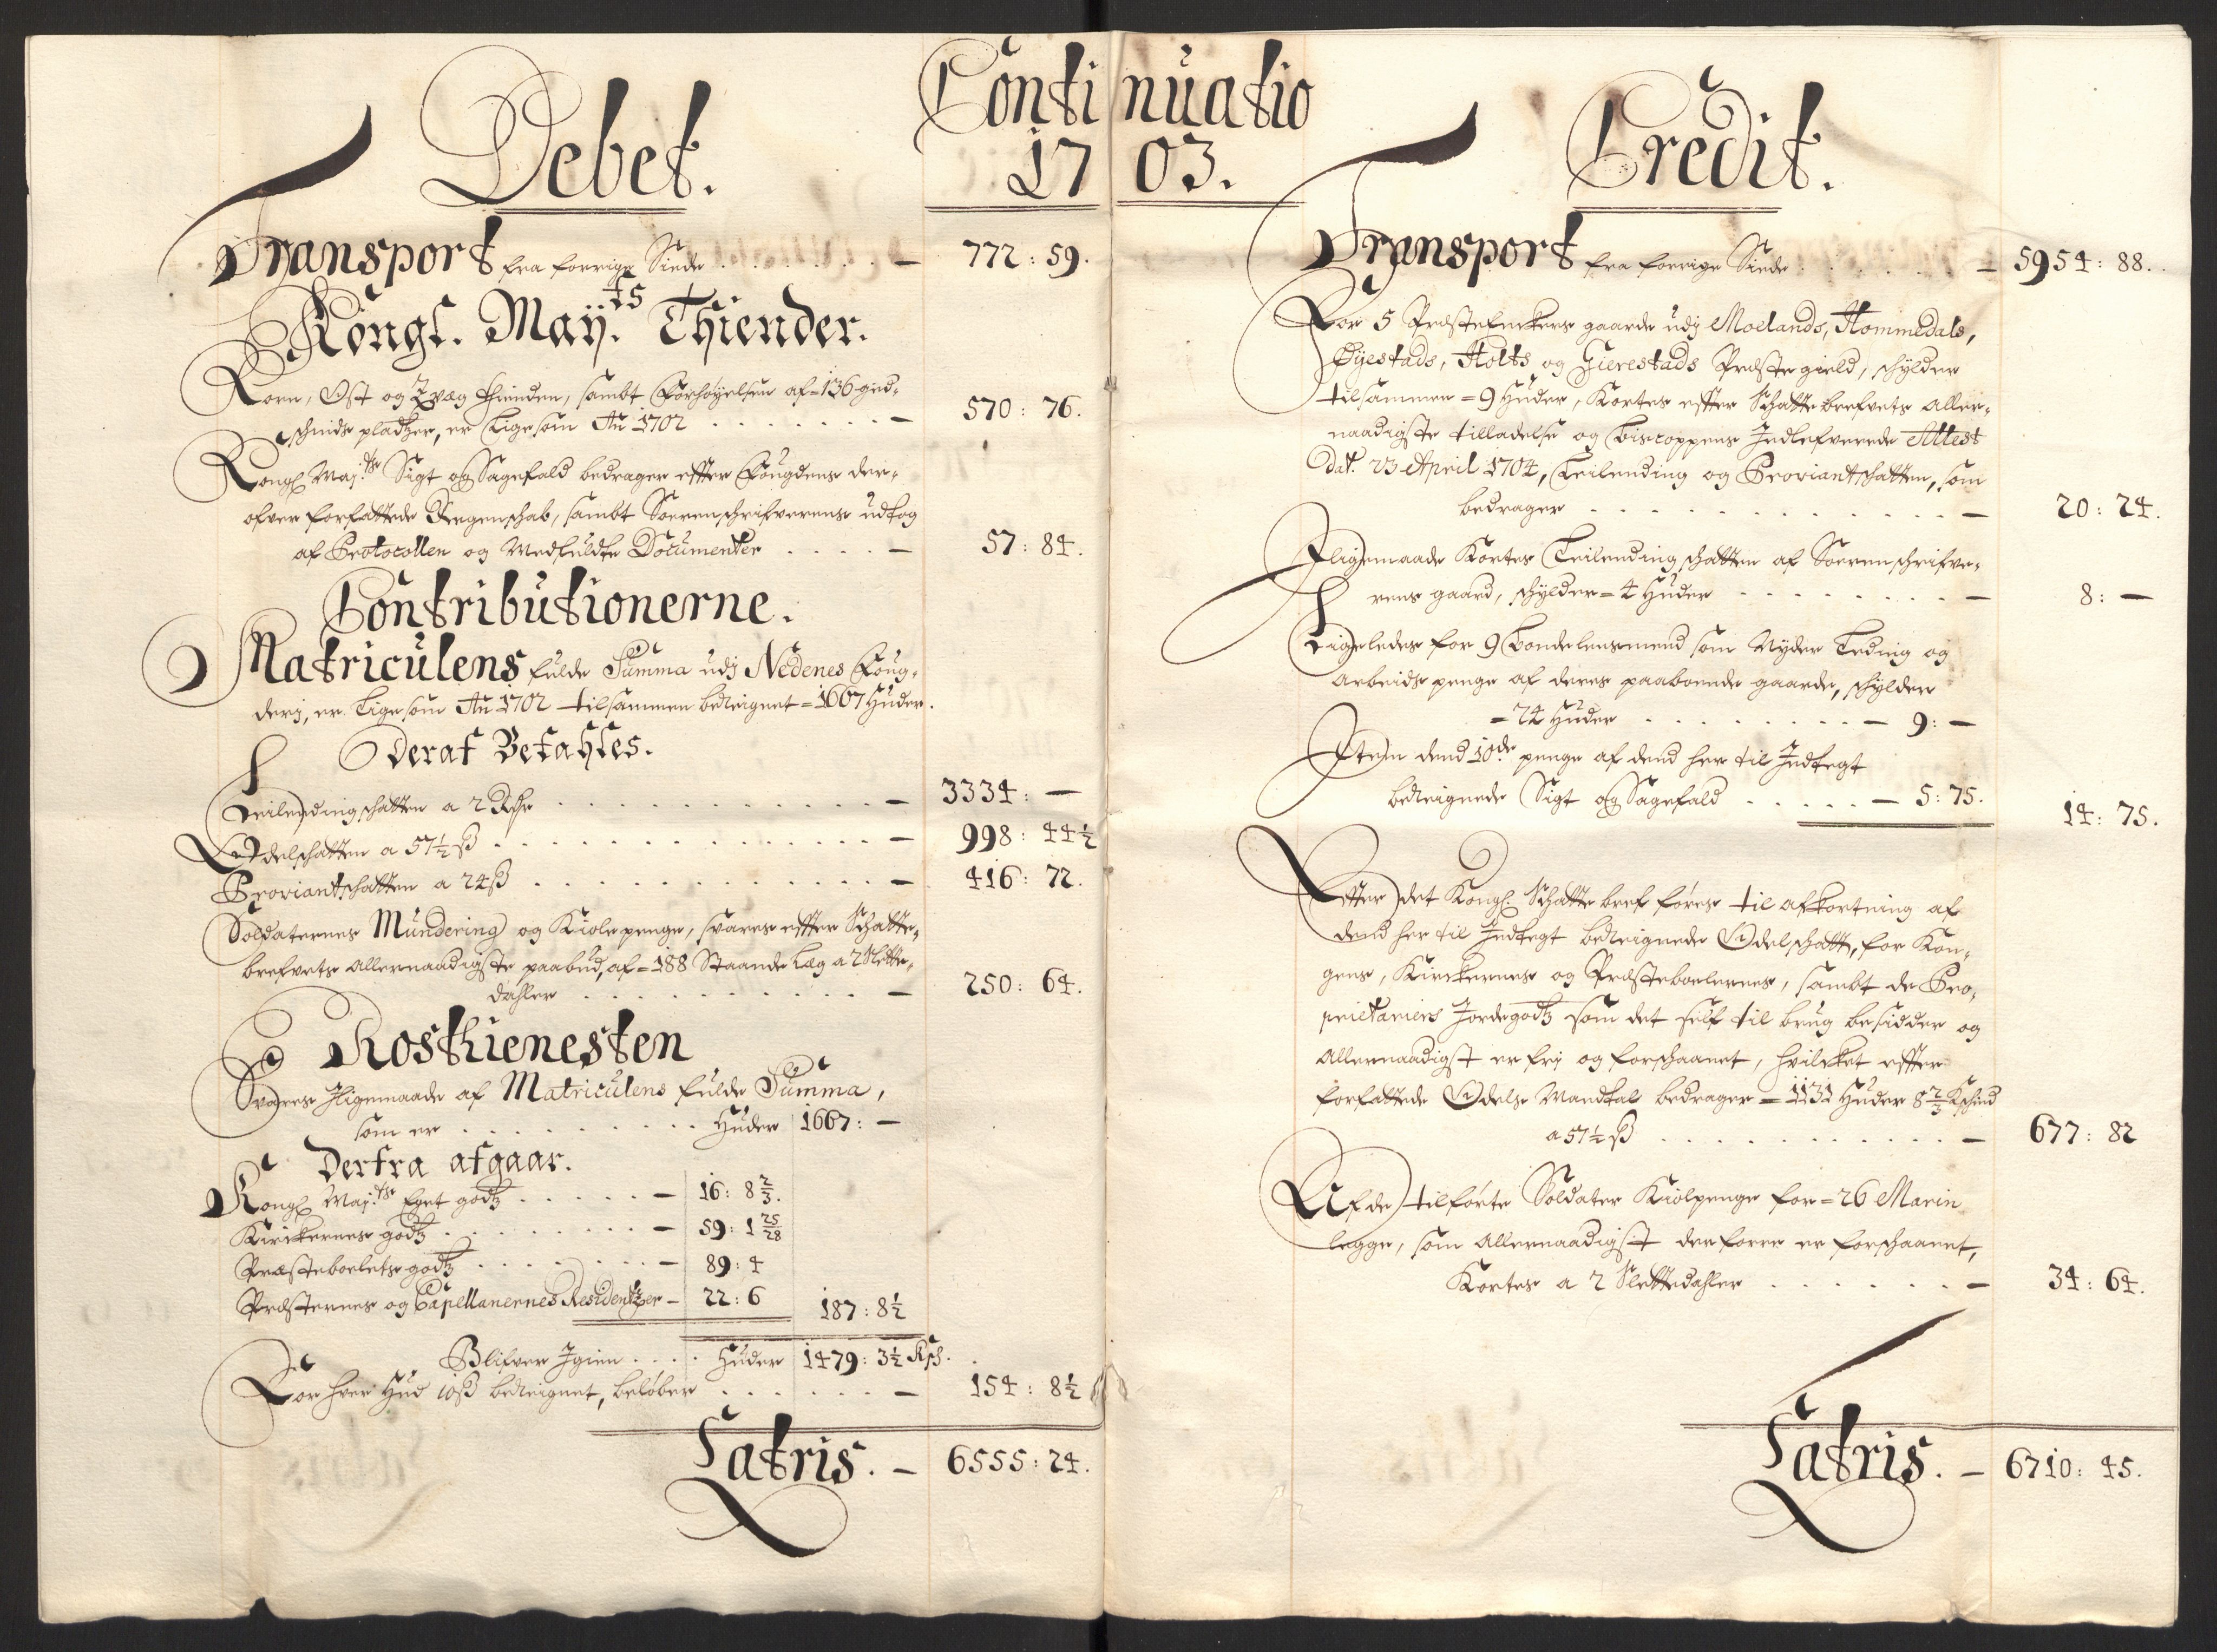 Continuatio
1703.
Debet.
Transport fra forrige Siede — 772: 59.
Kongl. May.ts Thiender.
Korn, Ost og Qvæg thienden, sambt Forhøyelsen af =136 gied-
schinds pladtzer, er Ligesom Ao 1702 — 570: 76.
Kongl Maj:ts Sigt og Sagefald bedrager effter Fougdens der-
ofver forfattede Regenschab, sambt Sorenschrifverens udtog
af Protocollen og Medfuldte Documenter — 57: 84.
Contributionerne.
Matriculens fulde Summa udj Nedenes Foug-
derj, er Ligesom Ao 1702 tilsammen bereignet =1667 Huder.
Deraf Betahles.
Leilendingschatten a 2 Rdr — 3334: —
Odelschatten a 57½ ß — 998: 44½
Proviantschatten a 24 ß — 416: 72.
Soldaternes Mundering og Kiolepenge, svares effter Schatte-
brefvets Allernaadigste paabud, af =188 Staande Læg a 2 Slette-
dahler — 250: 64.
Rostienesten
Svares Iligemaade af Matriculens fulde Summa,
som er Huder 1667: —
Derfra afgaar.
Kongl Maj:ts Eget godtz — 16: 8⅔.
Kirckernes godtz — 59: 1 25/28
Præsteboelets godtz — 89: 4
Præsternes og Capellanernes Residentzer — 22: 6 187: 8½
Blifver Igien Huder 1479: 3½ Ksch.
For hver Hud 10 ß bereignet, beløber — 154: 8½
Latris. — 6555: 24.
Credit.
Transport fra forrige Siede — 5954: 88.
For 5 Præste Enckers gaarde udj Moelands, Hommedals,
Øyestads, Holts og Gierestads Præstegield, schylder
tilsammen =9 Huder, Kortes effter Schattebrefvets Aller-
naadigste tilladelse og Biscoppens Indlefverede Attest
Dat. 23 April 1704, Leilending og Proviantschatten, som
bedrager — 20: 24.
Iligemaade Kortes Leilendingschatten af Sorenschrifve-
rens gaard, schylder =4 Huder — 8: —
Ligeledes for 9 Bondelensmend som Nyder Leding og
Arbeidspenge af deres paaboende gaarde, schylder
=24 Huder — 9: —
Item dend 10de penge af dend her til Indtegt
bereignede Sigt og Sagefald — 5: 75.
14: 75.
Effter det Kongl Schattebref føres til afkortning af
dend her til Indtegt bereignede Odelschatt, for Kon-
gens, Kirckernes og Præsteboelernes, sambt de Pro-
prietariers Jordegodtz som det self til brug besidder og
Allernaadigst er frj og forschaanet, hvilcket effter
forfattede Odels Mandtal bedrager =1131 Huder 8⅔ Kschind
a 57½ ß — 677: 82
Af de tilførte Soldater Kiolpenge for =26 Marin
legge, som Allernaadigst derforre er forschaanet,
Kortes a 2 Slettedahler — 34: 64.
Latris. — 6710: 45.